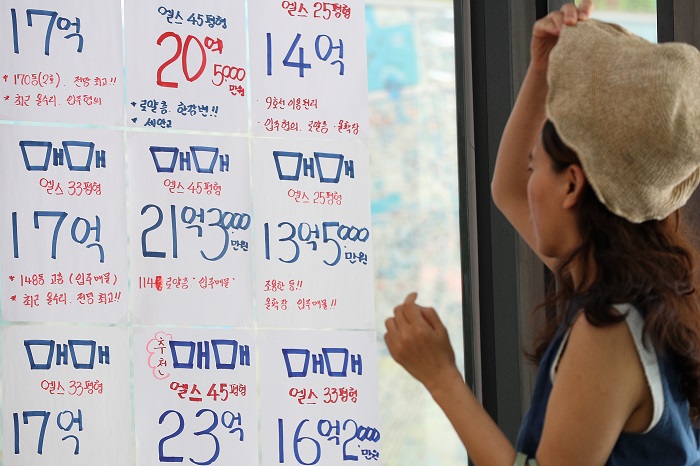 17억
* 170동(2호). 전망 최고!!
* 최근 올수리. 입주협의
엘스 45평형
20억
5000만원
· 로얄층. 한강변!!
· 세안고
엘스 25평형
14억
· 9호선 이용편리
· 입주협의. 로얄층. 올확장
매매
엘스 33평형
17억
* 148동 고층 (입주매물)
* 최근 올수리. 전망 최고!!
매매
엘스 45평형
21억3000만원
114 로얄층 · 입주매물 ·
매매
엘스 25평형
13억5000만원
조용한 동!!
올확장 · 입주매물!!
매매
엘스 33평형
17억
추천
매매
엘스 45평형
23억
매매
엘스 33평형
16억2000만원